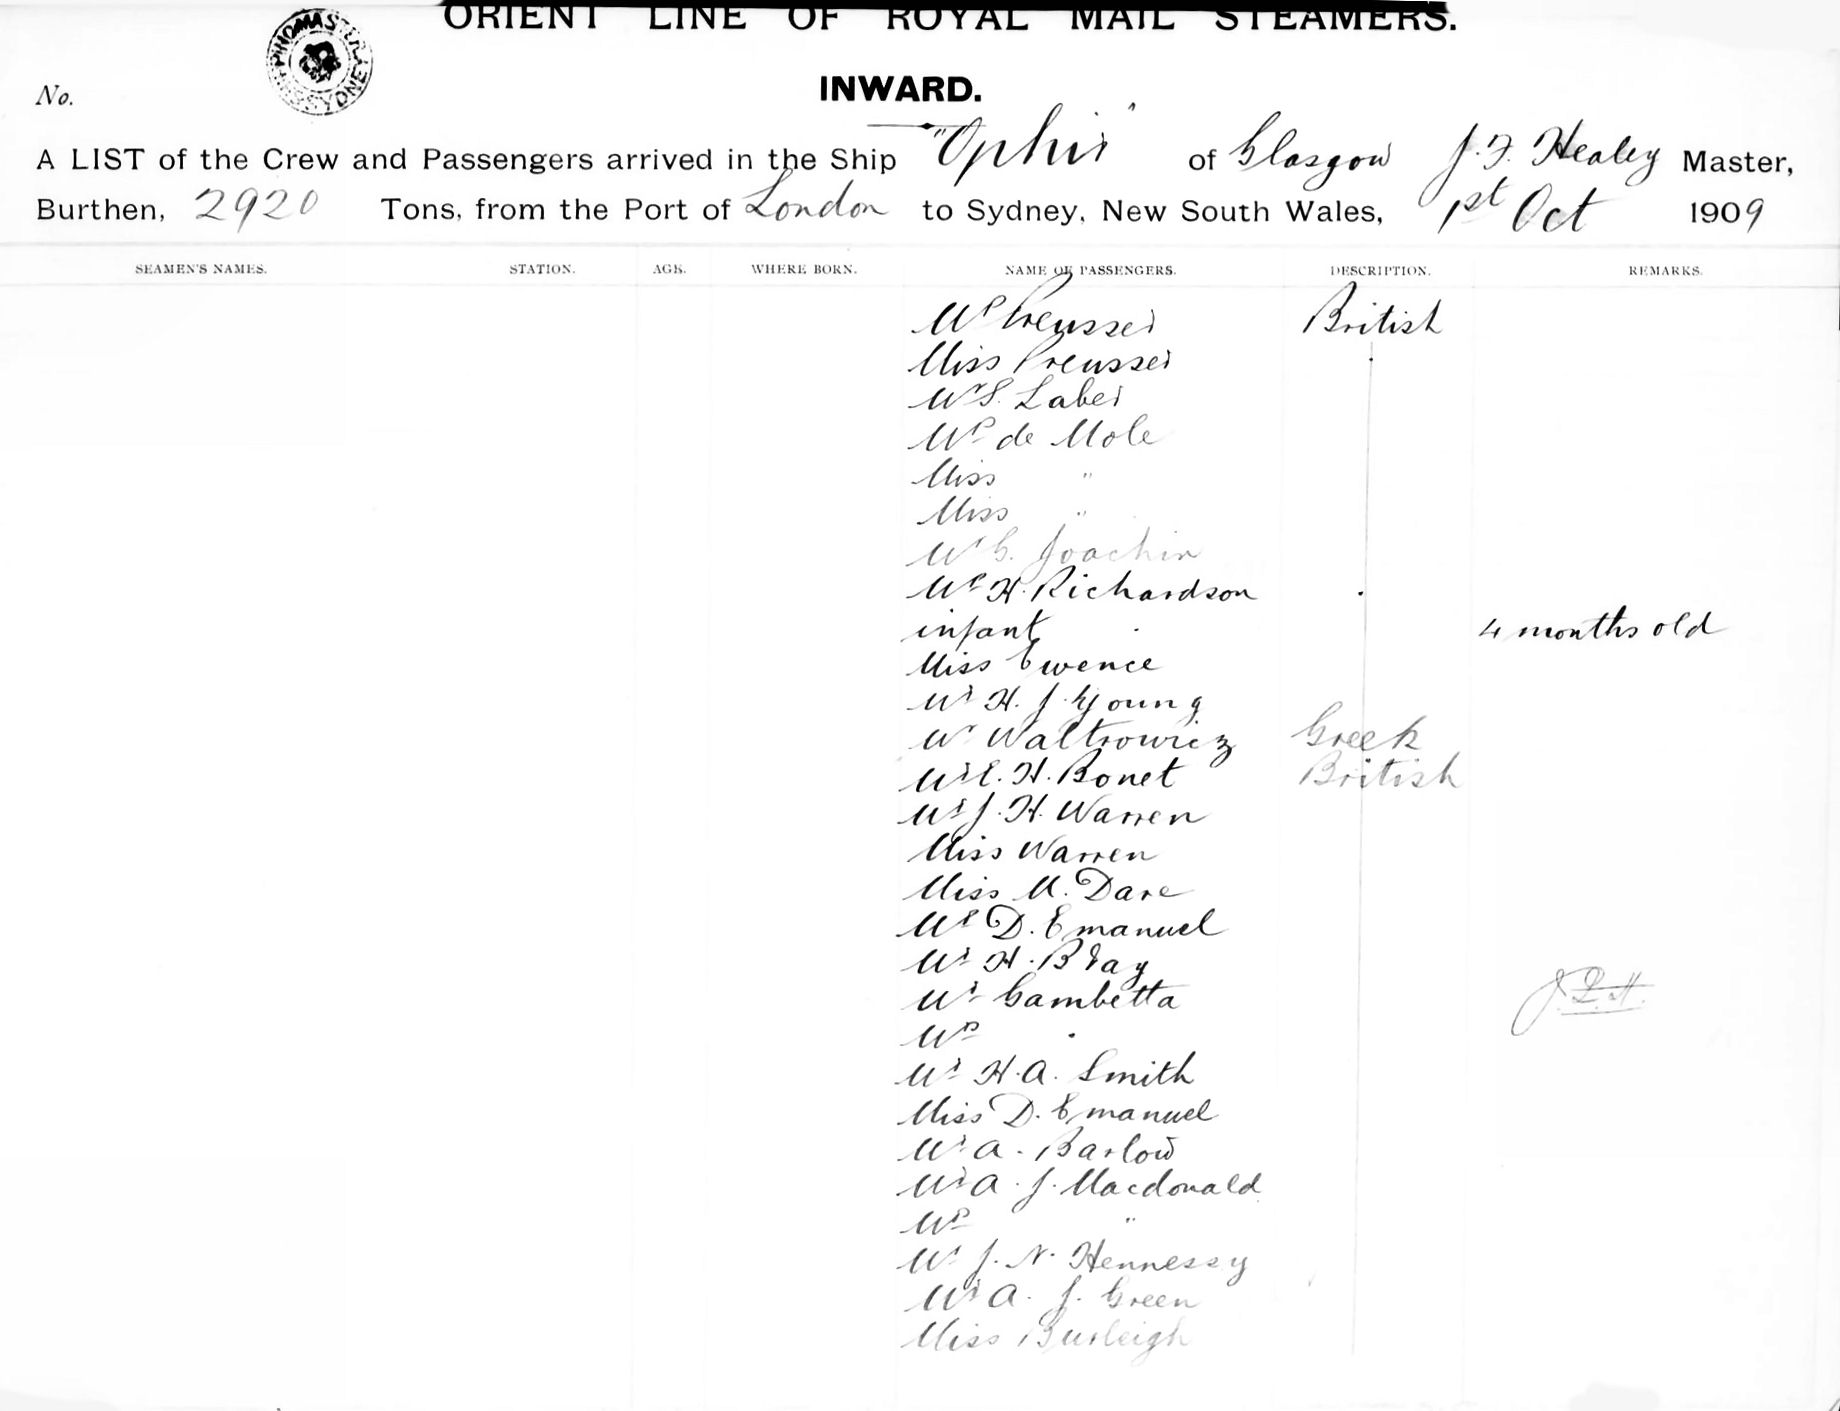 ORIENT LINE OF ROYAL MAIL STEAMERS.
INWARD.
No.
A LIST of the Crew and Passengers arrived in the Ship "Ophir" of Glasgow J. F. Healey Master,
Burthen, 2920 Tons, from the Port of London to Sydney, New South Wales, 1st Oct 1909
SEAMEN'S NAMES. STATION. AGE. WHERE BORN. NAME OF PASSENGERS. DESCRIPTION. REMARKS.
Mrs Preusser British
Miss Preusser
Mr S. Laber
Mrs de Mole
Miss "
Miss "
Mr G. Joachin
Mrs H. Richardson
infant 4 months old
Miss Ewence
Mr H. J. Young
Mr Waltrowicz Greek
Mr E. H. Bonet British
Mr J. H. Warren
Miss Warren
Miss M. Dare
Mrs D. Emanuel
Mr H. Bray
Mr Gambetta
Mrs "
Mr H. A. Smith
Miss D. Emanuel
Mr A. Barlow
Mr A. J. Macdonald
Mrs "
Mr J. N. Hennessy
Mr A. J. Green
Miss Burleigh